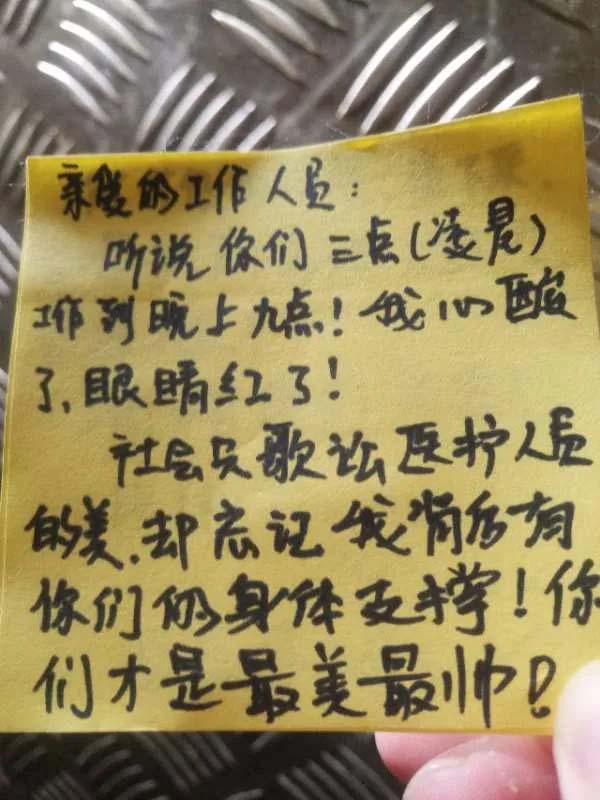 亲爱的工作人员：
听说你们三点（凌晨）
工作到晚上九点！我心酸
了，眼睛红了！
社会只歌讼医护人员
的美，却忘记我背后有
你们的身体支撑！你
们才是最美最帅！